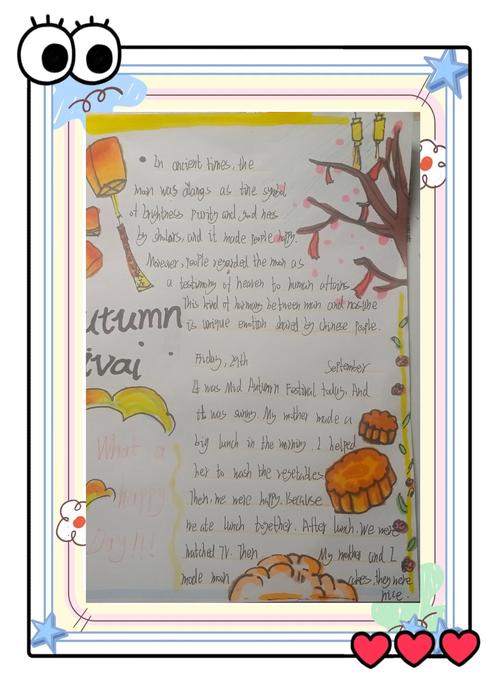 In ancient times, the
moon was always as the symbol
of brightness purity and
by sholars, and it made people happy.
Moreover, people regarded the moon as
a testimony of heaven to human affairs
This kind of harmony between man and nature
is unique emotion shared by chinese people.
utumn
ivai
Friday, 29th September
It was Mid Autumn Festival today. And
it was sunny. My mother made a
big lunch in the morning. I helped
her to wash the vegetables
Then, we were happy. Because
we ate lunch together. After lunch. We were
watched TV. Then My mother and I
made moon cakes, they were
nice.
What a
happy
Day!!!